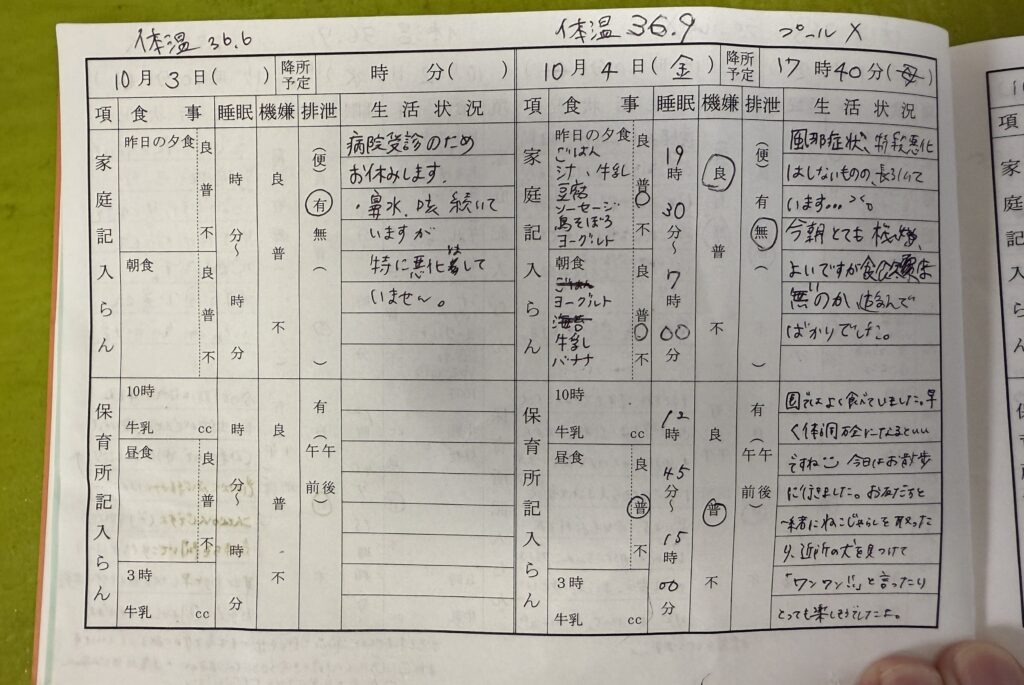 体温 36.6
体温 36.9 プール X
10月3日( ) 降所予定 時 分( )
項 食事 睡眠 機嫌 排泄 生活状況
家庭記入らん
昨日の夕食 良 普 不
時 分～ 時 分
良 普 不
(便) 有 無 ( )
病院受診のため
お休みします。
・鼻水、咳 続いて
いますが
特に悪化はして
いません。
朝食 良 普 不
保育所記入らん
10時
牛乳 cc
昼食 良 普 不
3時
牛乳 cc
時 分～ 時 分
良 普 不
有 (午前 午後)
10月4日(金) 降所予定 17時40分(母)
項 食事 睡眠 機嫌 排泄 生活状況
家庭記入らん
昨日の夕食 良 普 不
ごはん
汁、牛乳
豆腐
ソーセージ
鳥そぼろ
ヨーグルト
朝食 良 普 不
ごはん
ヨーグルト
海苔
牛乳
バナナ
19時30分～7時00分
良 普 不
(便) 有 無 ( )
風邪症状、特段悪化
はしないものの、長引いて
います...
今朝とても機嫌
よいですが食欲は
無いのか 遊んで
ばかりでした。
保育所記入らん
10時
牛乳 cc
昼食 良 普 不
3時
牛乳 cc
12時45分～15時00分
良 普 不
有 (午前 午後)
園ではよく食べていました。早
く体調万全になるといい
ですね 今日はお散歩
に行きました。お友だちと
一緒にねこじゃらしを取った
り、近所の犬を見つけて
「ワンワン!!」と言ったり
とっても楽しそうでしたよ。
項
家庭記入らん